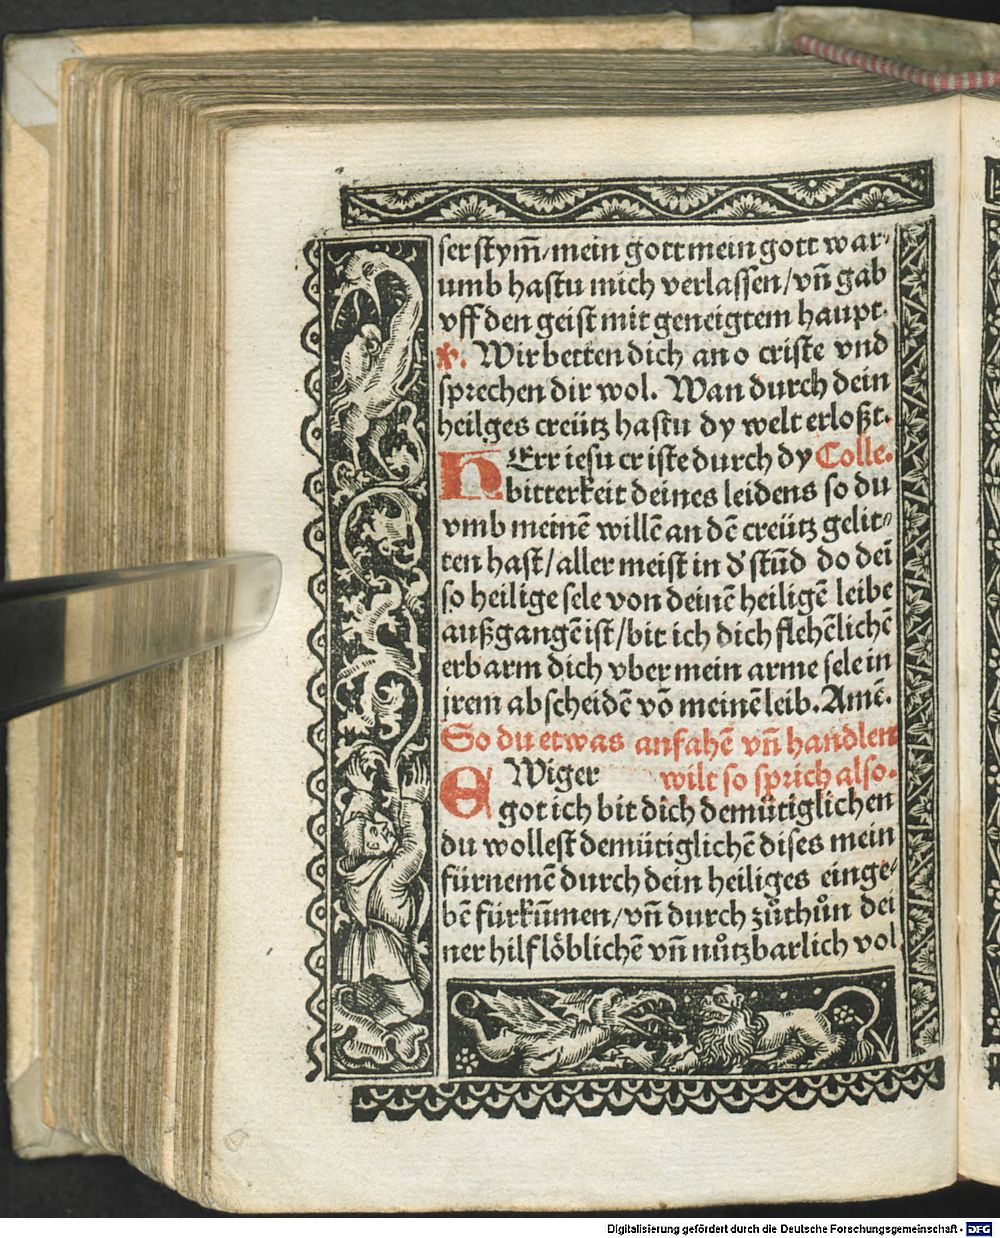 ser stym̄/mein gott mein gott war⸗
umb hastu mich verlassen/vn̄ gab
vff den geist mit geneigtem haupt.
✠. Wir betten dich an o criste vnd
sprechen dir wol. Wan durch dein
heilges creütz hastu dy welt erloßt.
HErr iesu criste durch dy Colle.
bitterkeit deines leidens so du
vmb meinē willē an dē creütz gelit⸗
ten hast/aller meist in d' stūd do deī
so heilige sele von deinē heiligē leibe
außgangē ist/bit ich dich flehēlichē
erbarm dich vber mein arme sele in
jrem abscheidē vō meinē leib. Amē.
So du etwas anfahē vn̄ handlen
EWiger wilt so sprich also.
got ich bit dich demütiglichen
du wollest demütiglichē dises mein
fürnemē durch dein heiliges einge⸗
bē fürkūmen/vn̄ durch zůthůn dei
ner hilf löblichē vn̄ nůtzbarlich vol
Digitalisierung gefördert durch die Deutsche Forschungsgemeinschaft - DFG